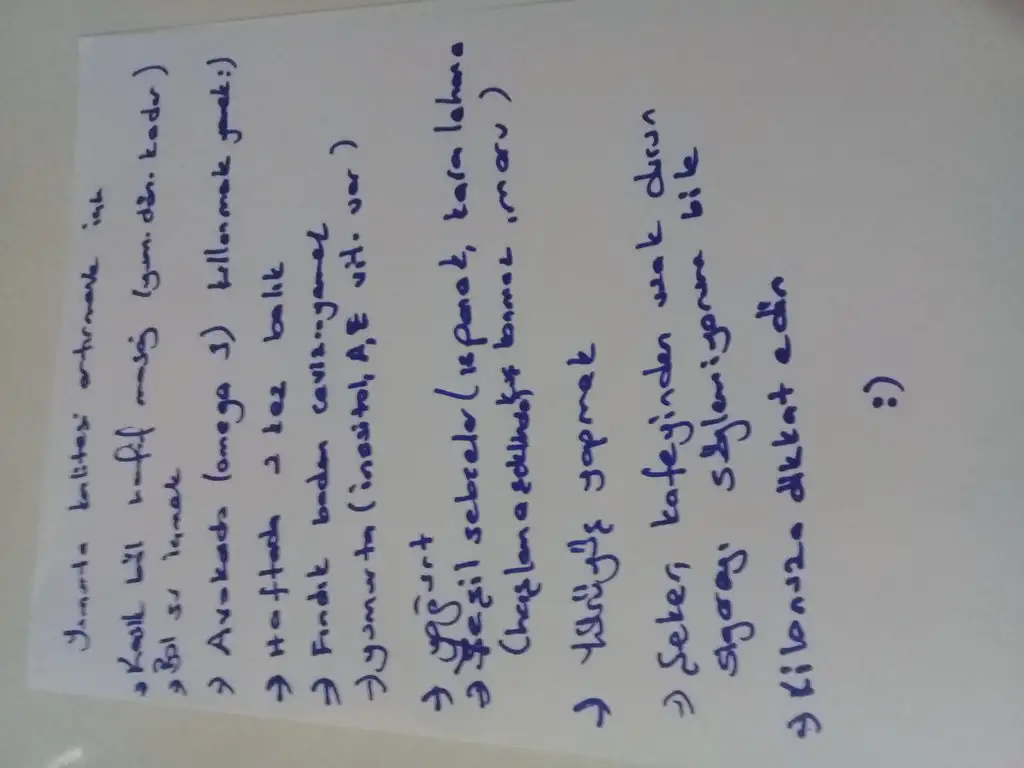 Yumurta kalitesi artırmak için
→ Kasık hafif masaj (yum. dön. kadar)
→ Bol su içmek
→ Avakado (omega 3) kullanmak yemek:)
→ Haftada 2 kez balık
→ Fındık badem ceviz yemek
→ yumurta (inositol, A, E vit. var)
→ yoğurt
→ Yeşil sebzeler (ıspanak, kara lahana
(haşlana brokoli, marul)
→ Yürüyüş yapmak
→ Şeker, kafeyinden uzak durun
sigarayı söylemiyorum bile
→ Kilonuza dikkat edin
:)